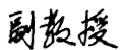 副教授